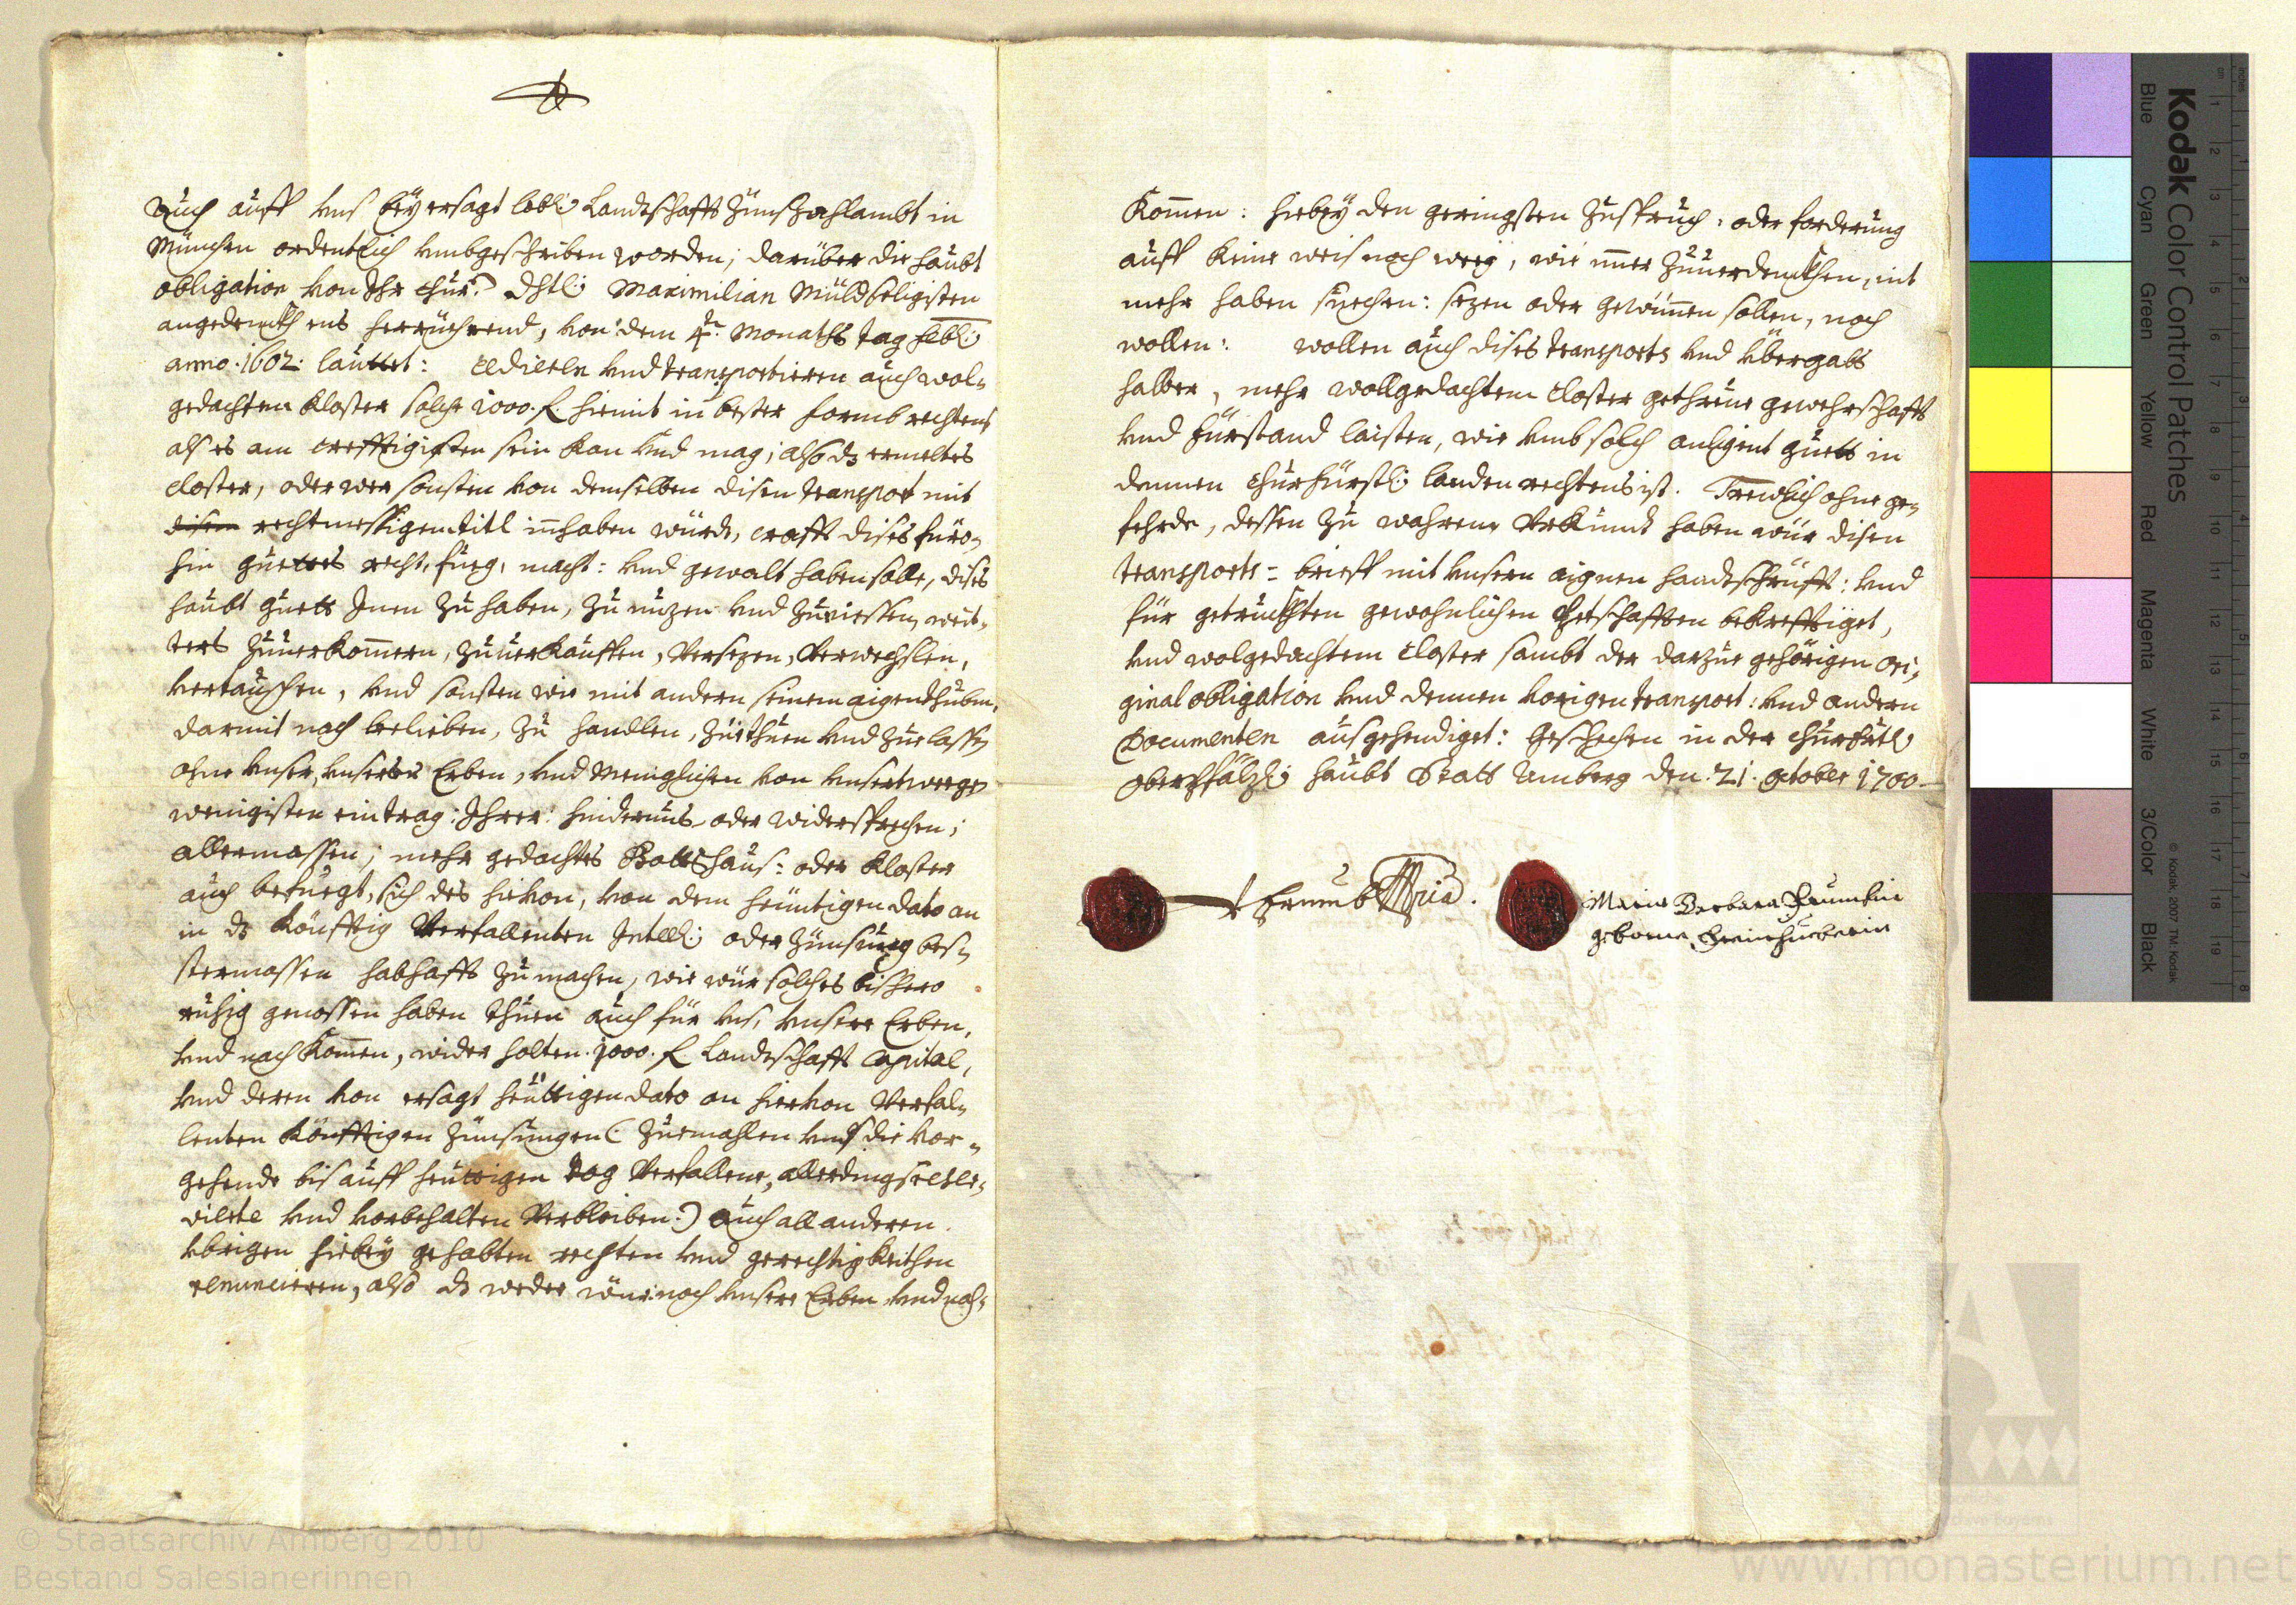 auch auff vns bey ersagt lobl: Landtschafft Zünszahlambt in
München ordentlich vmbgeschriben worden; darüber die haubt
obligation von Ihr Chür: Dhtl: Maximilian Müldseligisten
angedenckhens herrüehrend, von dem 4t. Monaths tag febl:
anno 1602: lauttet: Cediern vnd transportieren auch wol-
gedachten Kloster solche 1000. f hiemit in bester formb rechtens
als es am crefftigisten sein kan vnd mag; also dz ermeltes
closter, oder wer sonsten von demselben disen transport mit
disem rechtmessigem titl innhaben würdt, crafft dises füro-
hin guettes recht, fueg, macht: vnd gewalt haben solle, dises
haubt guett Inen zu haben, zu nuzen vnd zu niessen, weit-
ters zuuerkommern, zuuerkauffen, Versezen, Verwechslen,
vertauschen, vnd sonsten wie mit andern seinem aigenthumb,
darmit nach belieben, zu handlen, zuethuen vnd zuelassen
ohne vnser, vnserer Erben, vnd Meniglichen von vnsertweegen
wenigisten eintrag: Ihrer: hindernus oder widersprechen;
allermassen; mehr gedachtes Gottshaus: oder Kloster
auch befuegt, sich des hievon, von dem heuntigen dato an
in dz könfftig Verfallenten Intell: oder Zünsung bes-
stermassen habhafft zu machen, wie wür solches bishero
ruhig genossen haben thuen auch für vns, vnsere Erben,
vnd nachkommen, wider holten 1000. f Landtschafft Capital,
vnd deren von ersagt heuttigen dato an hiervon Verfal-
lenten könfftigen Zünsungen (: zuemahlen vns die vor-
gehende bis auff heuttigen tag Verfallene, allerdings
vnd vorbehalten Verbleiben:) auch all anderen
vbrigen hiebey gehabten rechten vnd gerechtigkeithen
renuncieren, also dz weder wür noch vnsere Erben vnd nach-
kommen: hiebey den geringsten Zuespruch: oder forderung
auff keine weis noch weeg, wie immer zuuerdenckhen, nit
mehr haben suechen: sezen oder gewinnen sollen, noch
wollen: wollen auch dises transports vnd vbergabs
halber, mehr wollgedachtem closter gethreue gewehrschafft
vnd fürstand laisten, wie vmb solch anligent guett in
dennen Churfürstl: landen rechtens ist. Trewlich ohne ge-
fehrde, dessen zu wahrem Vrkundt haben wür disen
transports = brieff mit vnsern aignen handtschrüfft: vnd
für getruckhten gewohnlichen Petschafften bekrefftiget,
vnd wolgedachtem Closter sambt der darzue gehörigen ori-
ginal obligation vnd dennen vorigen transport: vnd andern
Documenten ausgehendiget: Geschechen in der Churfütl
Oberpfalz: haubt Statt Amberg den. 21. October 1700.
Maria Barbara
geborne
Kodak Color Control Patches
Blue Cyan Green Yellow Red Magenta White 3/Color Black
© Kodak, 2007 TM: Kodak
inches
cm
1 2 3 4 5 6 7 8 9 10 11 12 13 14 15 16 17 18 19
1 2 3 4 5 6 7 8
© Staatsarchiv Amberg 2010
Bestand Salesianerinnen
www.monasterium.net